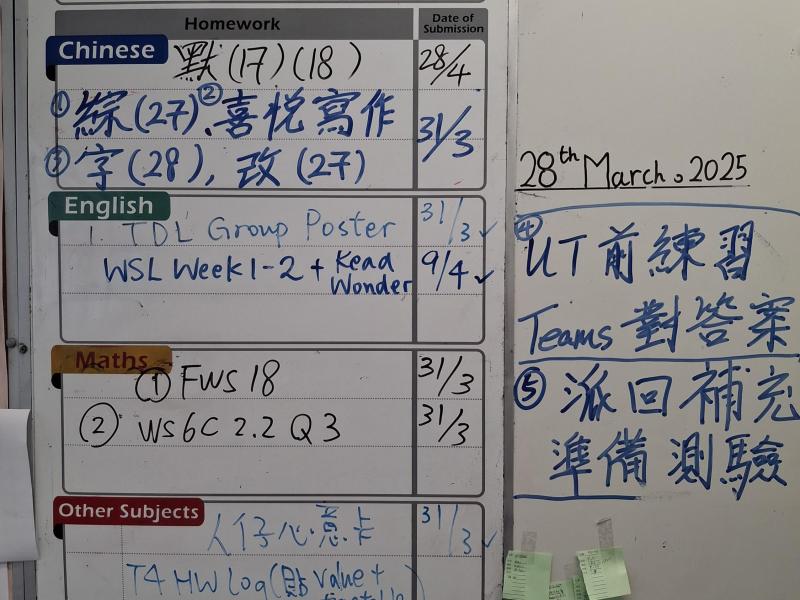 Homework
Date of Submission
Chinese
默(17)(18) 28/4
① 綜(27)、② 喜悅寫作 31/3
③ 字(28), 改(27)
English
1. TDL Group Poster 31/3 ✓
WSL Week 1-2 + Read Wonder 9/4 ✓
Maths
① FWS 18 31/3
② WS 6C 2.2 Q3 31/3
Other Subjects
人仔心意卡 31/3 ✓
T4 HW Log (貼 value +
28th March. 2025
④ UT前練習
Teams 對答案
⑤ 派回補充
準備測驗